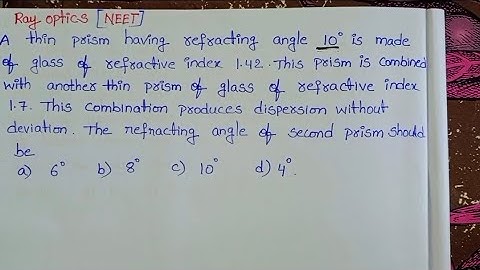 Ray optics [NEET]
A thin prism having refracting angle 10° is made
of glass of refractive index 1.42. This prism is combined
with another thin prism of glass of refractive index
1.7. This combination produces dispersion without
deviation. The refracting angle of second prism should
be
a) 6° b) 8° c) 10° d) 4°.